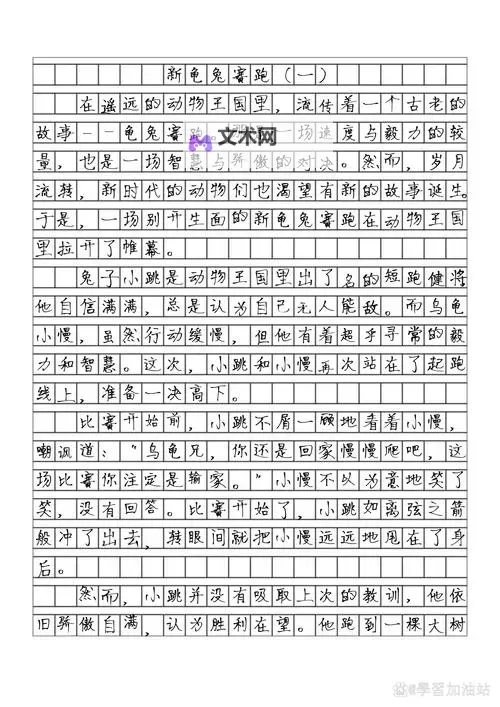 新龟兔赛跑（一）
在遥远的动物王国里，流传着一个古老的
故事--龟兔赛跑。那是一场速度与毅力的较
文术网
量，也是一场智慧与骄傲的对决。然而，岁月
流转，新时代的动物们也渴望有新的故事诞生。
于是，一场别开生面的新龟兔赛跑在动物王国
里拉开了帷幕。
兔子小跳是动物王国里出了名的短跑健将
他自信满满，总是认为自己无人能敌。而乌龟
小慢，虽然行动缓慢，但他有着超乎寻常的毅
力和智慧。这次，小跳和小慢再次站在了起跑
线上，准备一决高下。
比赛开始前，小跳不屑一顾地看着小慢，
嘲讽道：“乌龟兄，你还是回家慢慢爬吧，这
场比赛你注定是输家。”小慢不以为意地笑了
笑，没有回答。比赛开始了，小跳如离弦之箭
般冲了出去，转眼间就把小慢远远地甩在了身
后。
然而，小跳并没有吸取上次的教训，他依
旧骄傲自满，认为胜利在望。他跑到一棵大树
學習加油站